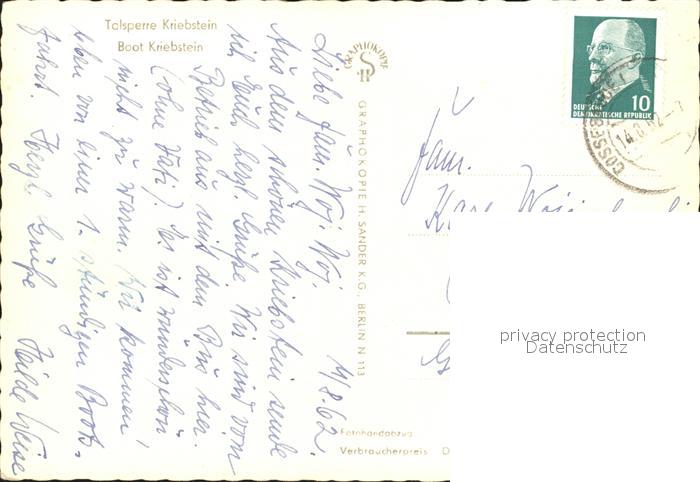 Talsperre Kriebstein
Boot Kriebstein
14/8.62.
Liebe Fam. Woj. Woj.
Aus dem schönen Kriebstein sende
ich Euch herzl. Grüße. Wir sind vom
Betrieb aus mit dem Bus hier.
(ohne Vati). Es ist wunderschön
nicht zu warm. Wir kommen
eben von einer 1. stündigen Boots-
fahrt. Herzl. Grüße Heide Weise
GRAPHOKOPIE
GRAPHOKOPIE H. SANDER K.G., BERLIN N 113
DEUTSCHE
DEMOKRATISCHE REPUBLIK
10
14.8.62
Fam.
Fotohandabzug
Verbraucherpreis D
privacy protection
Datenschutz